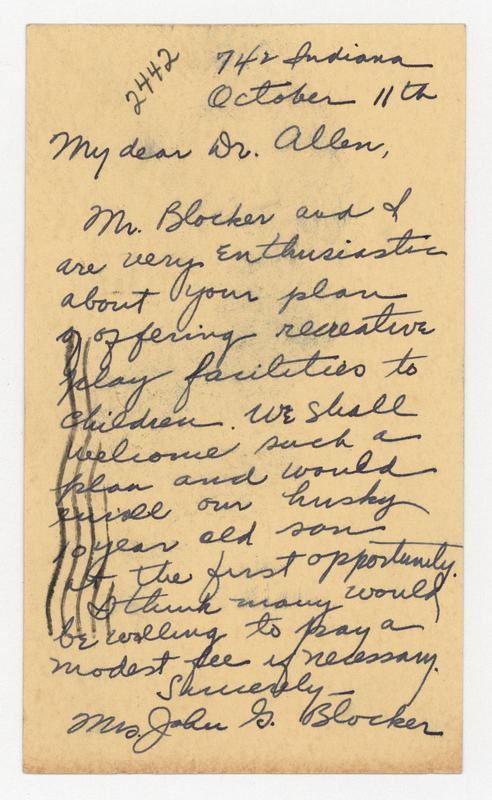 2442
742 Indiana
October 11th
My dear Dr. Allen,
Mr. Blocker and I
are very enthusiastic
about your plan
of offering recreative
play facilities to
children. We shall
welcome such a
plan and would
enroll our husky
10 year old son
at the first opportunity.
I think many would
be willing to pay a
modest fee if necessary.
Sincerely -
Mrs. John G. Blocker